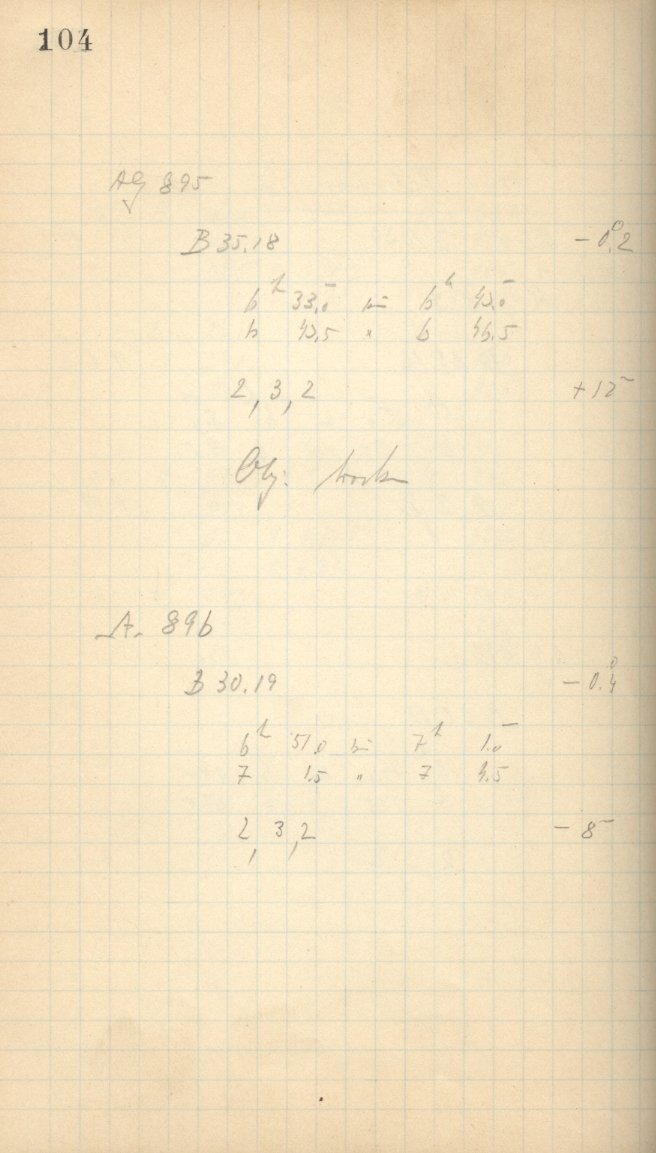 104
AG 895
B 35.18 -0.°2
6ʰ 33.0 bis 6ʰ 43.0
6 43.5 " 6 46.5
2, 3, 2 +12
Obj. trocken
A. 896
B 30.19 -0.°4
6ʰ 51.0 bis 7ʰ 1.0
7 1.5 " 7 4.5
2, 3, 2 -8